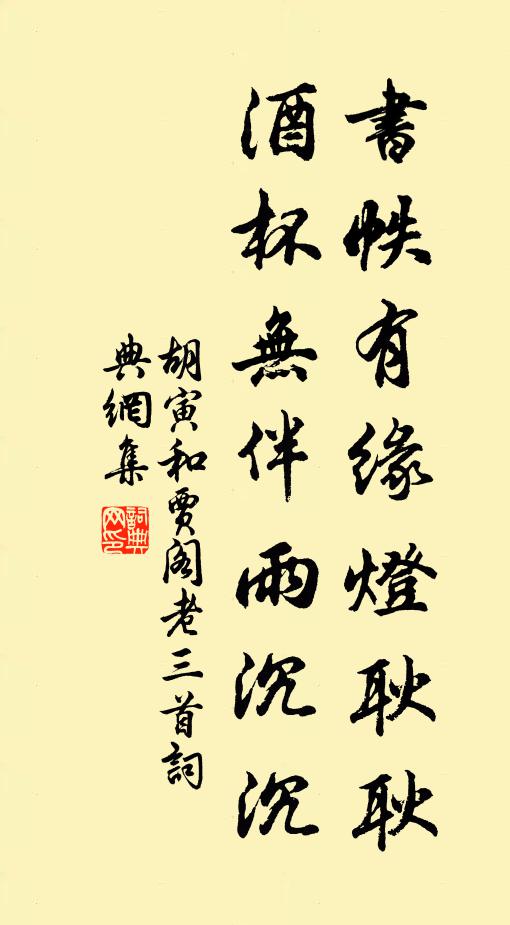 書帙有緣燈耿耿
酒杯無伴雨沉沉
胡寅和賈阁老三首詞
典網集
詞典
网印